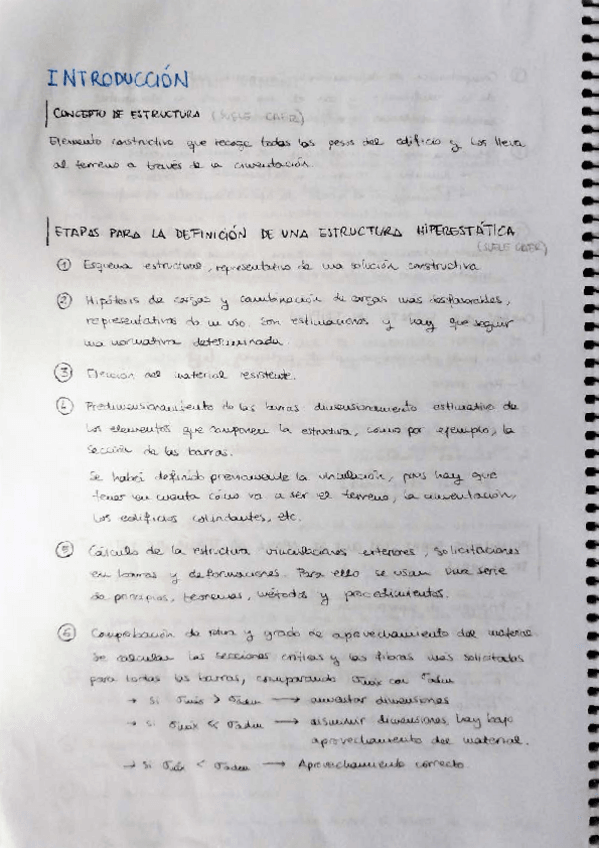 INTRODUCCIÓN
CONCEPTO DE ESTRUCTURA (SUELE CAER)
Elemento constructivo que recoge todos los pesos del edificio y los lleva
al terreno a través de la cimentación.
ETAPAS PARA LA DEFINICIÓN DE UNA ESTRUCTURA HIPERESTÁTICA
(SUELE CAER)
① Esquema estructural, representativo de una solución constructiva
② Hipótesis de cargas y combinación de cargas mas desfavorables,
representativas de un uso. Son estimaciones y hay que seguir
una normativa determinada.
③ Elección del material resistente.
④ Predimensionamiento de las barras dimensionamiento estimativo de
los elementos que componen la estructura, como por ejemplo, la
sección de las barras.
Se habrá definido previamente la vinculación, pues hay que
tener en cuenta cómo va a ser el terreno, la cimentación,
los edificios colindantes, etc.
⑤ Cálculo de la estructura vinculaciones exteriores, solicitaciones
en barras y deformaciones. Para ello se usan una serie
de principios, teoremas, métodos y procedimientos.
⑥ Comprobación de rotura y grado de aprovechamiento del material
Se calculan las secciones críticas y las fibras más solicitadas
para todas las barras, comparando σmáx con σadm
→ Si σmáx > σadm → aumentar dimensiones
→ Si σmáx << σadm → disminuir dimensiones, hay bajo
aprovechamiento del material.
→ Si σmáx < σadm → Aprovechamiento correcto.